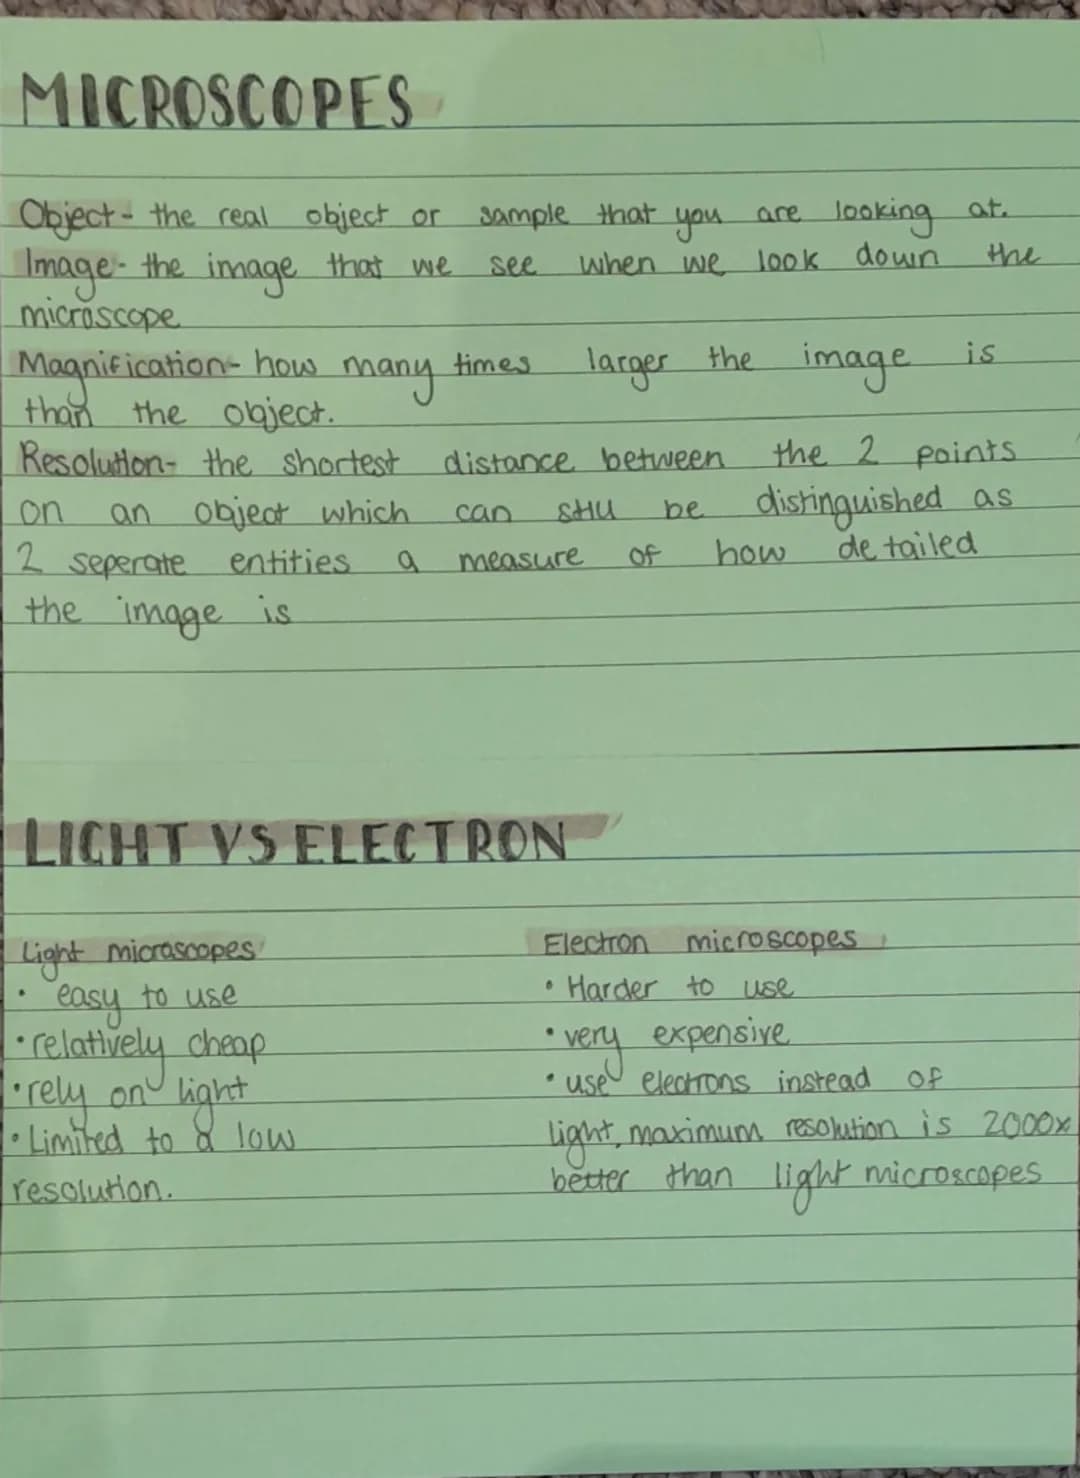 MICROSCOPES
Object- the real object or sample that you are looking at.
Image- the image that we see when we look down the
microscope
Magnification- how many times larger the image is
than the object.
Resolution- the shortest distance between the 2 points
on an object which can still be distinguished as
2 seperate entities a measure of how detailed
the image is
LIGHT VS ELECTRON
Light microscopes
• easy to use
• relatively cheap
• rely on light
• Limited to a low
resolution.
Electron microscopes
• Harder to use
• very expensive
• use electrons instead of
light, maximum resolution is 2000x
better than light microscopes